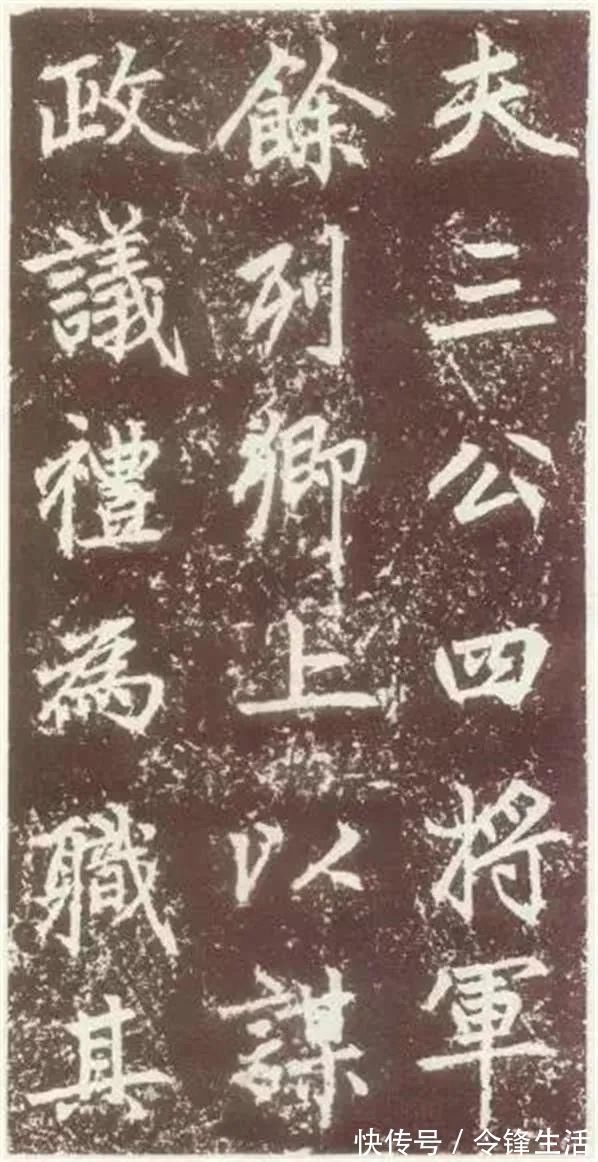 夫三公四將軍
餘列卿上以謀
政議禮為職其
快传号/令锋生活